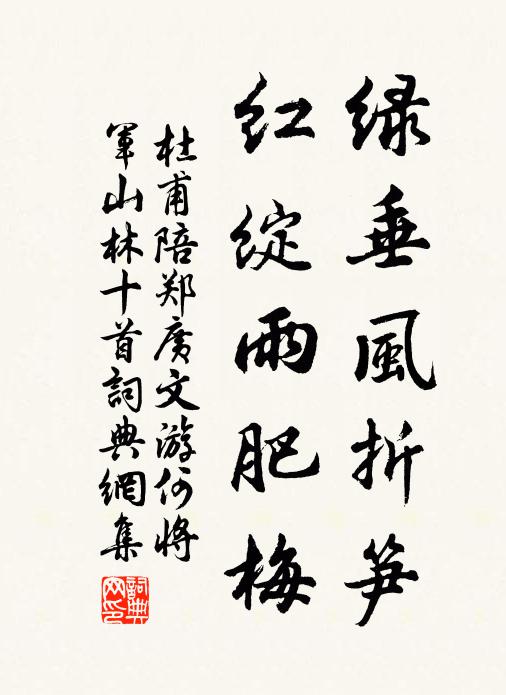 绿垂風折笋
红绽雨肥梅
杜甫陪郑廣文游何將
軍山林十首詞典網集
詞典網印